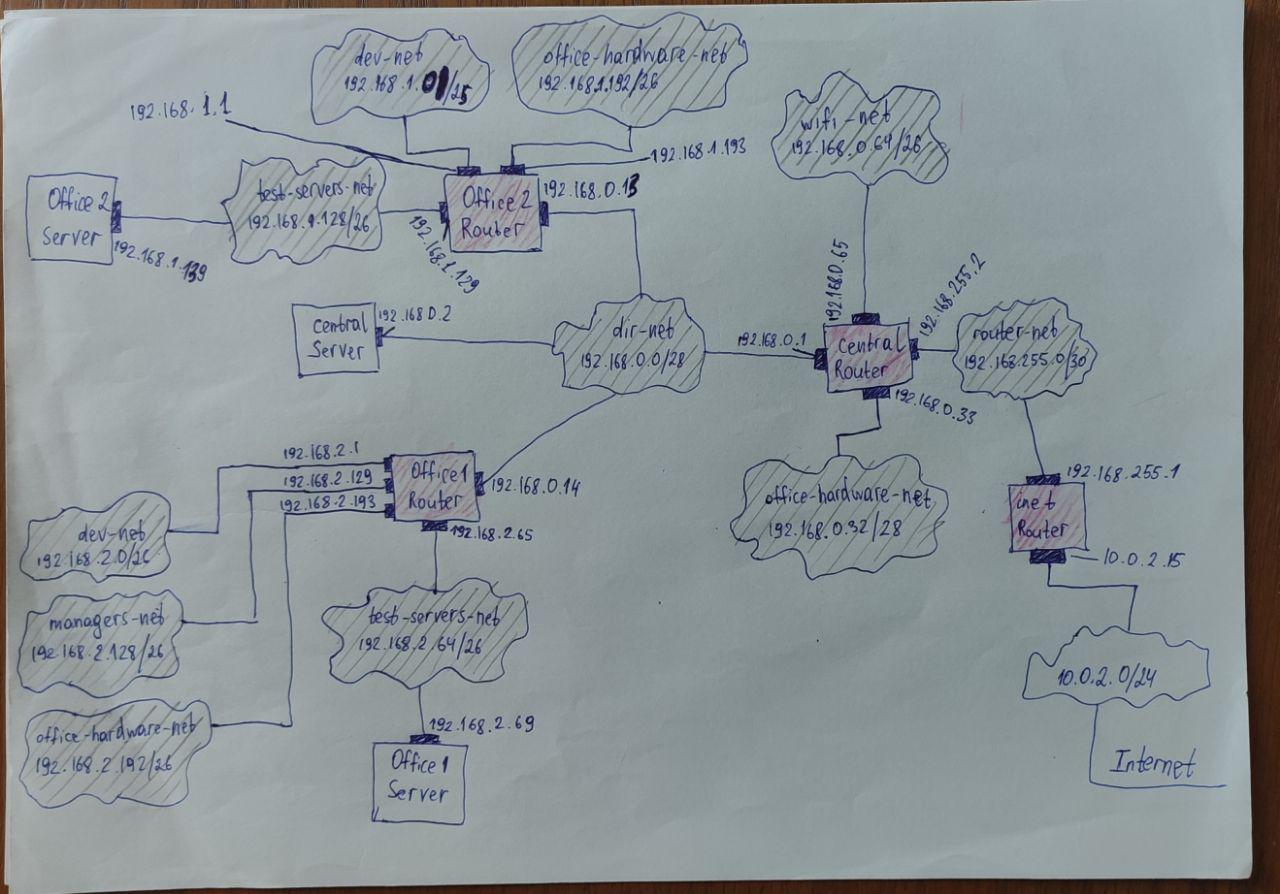 dev-net
192.168.1.0/25
office-hardware-net
192.168.1.192/26
192.168.1.1
wifi-net
192.168.0.64/26
192.168.1.193
test-servers-net
192.168.1.128/26
Office 2
Router
192.168.0.13
Office 2
Server
192.168.1.139
192.168.1.129
192.168.0.65
192.168.255.2
Central
Server
192.168.0.2
dir-net
192.168.0.0/28
192.168.0.1
Central
Router
router-net
192.168.255.0/30
192.168.0.33
192.168.2.1
192.168.2.129
192.168.2.193
Office 1
Router
192.168.0.14
192.168.2.65
office-hardware-net
192.168.0.32/28
192.168.255.1
inet
Router
10.0.2.15
dev-net
192.168.2.0/26
managers-net
192.168.2.128/26
test-servers-net
192.168.2.64/26
10.0.2.0/24
office-hardware-net
192.168.2.192/26
192.168.2.69
Office 1
Server
Internet